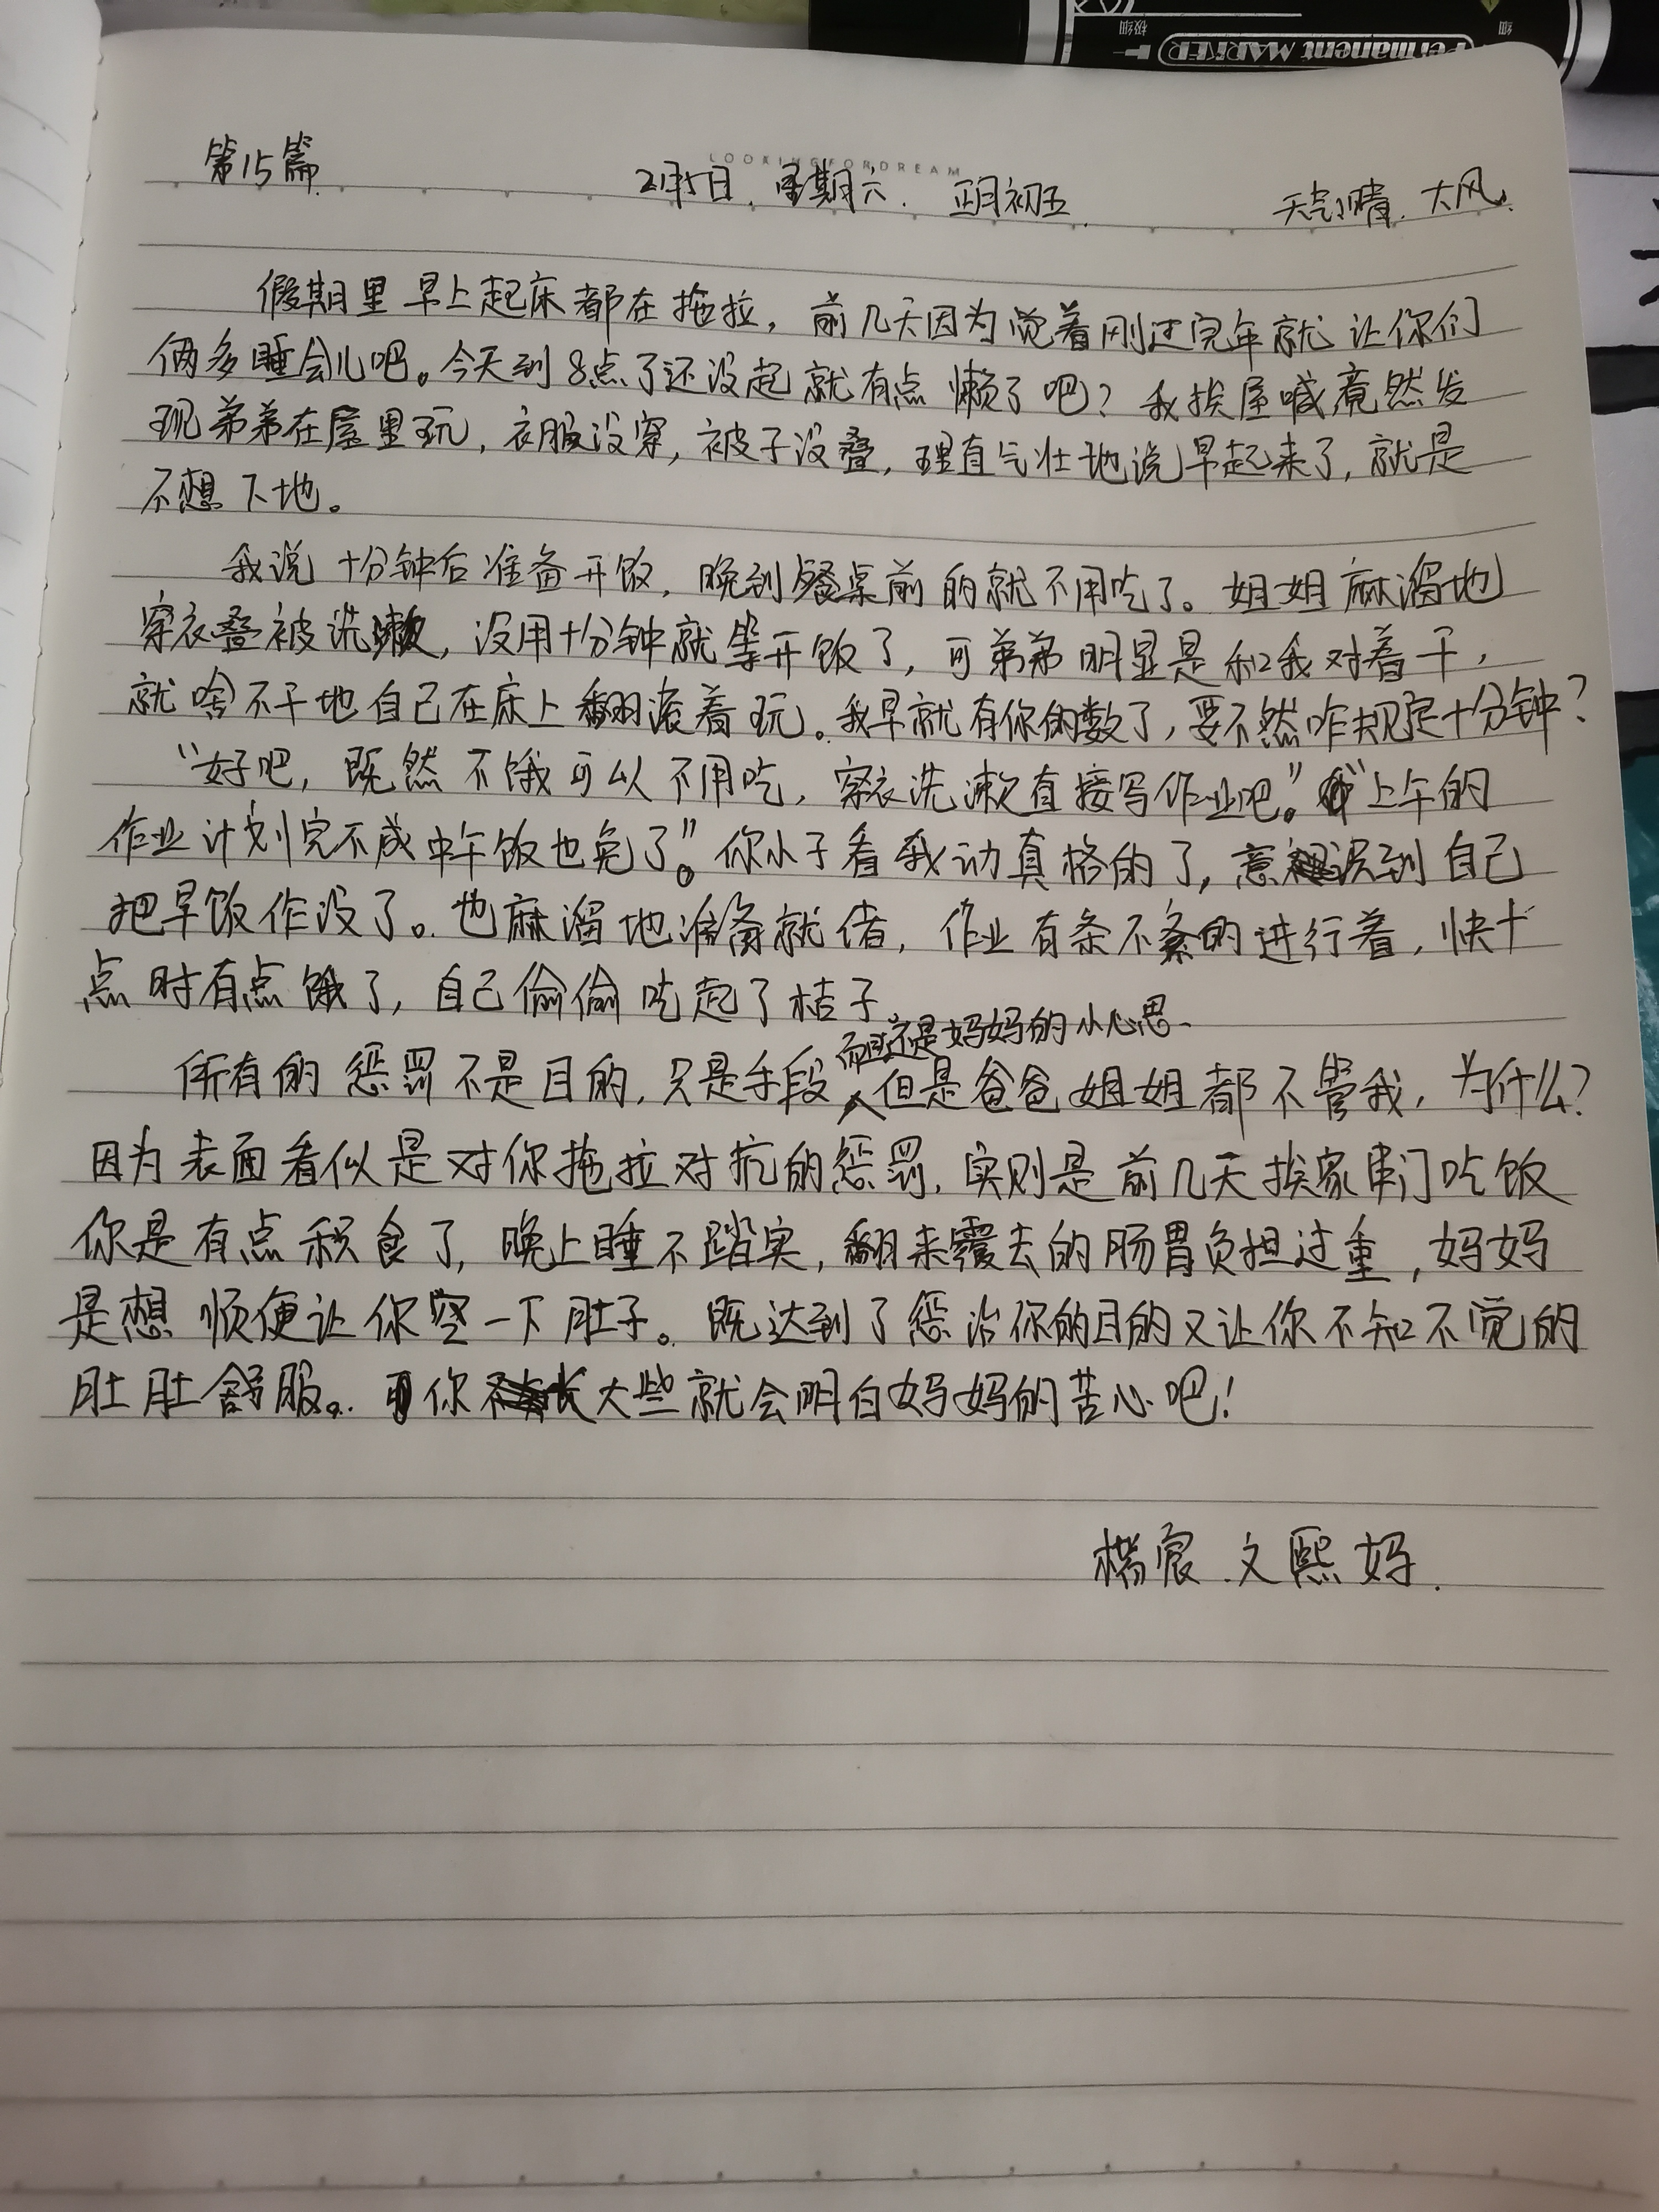 极细
Permanent MARKER
细
LOOKINGFORDREAM
第15篇
2月5日. 星期六. 正月初五.
天气:晴. 大风.
假期里早上起床都在拖拉，前几天因为觉着刚过完年就让你们
俩多睡会儿吧。今天到8点了还没起就有点懒了吧？我挨屋喊竟然发
现弟弟在屋里玩，衣服没穿，被子没叠，理直气壮地说早起来了，就是
不想下地。
我说十分钟后准备开饭，晚到餐桌前的就不用吃了。姐姐麻溜地
穿衣叠被洗漱，没用十分钟就等开饭了，可弟弟明显是和我对着干，
就啥不干地自己在床上翻滚着玩。我早就有你的数了，要不然咋规定十分钟？
“好吧，既然不饿可以不用吃，穿衣洗漱直接写作业吧。”“上午的
作业计划完不成中午饭也免了”。你小子看我动真格的了，意识到自己
把早饭作没了。也麻溜地准备就绪，作业有条不紊的进行着，快十
点时有点饿了，自己偷偷吃起了桔子。
而且这是妈妈的小心思.
所有的惩罚不是目的，只是手段，但是爸爸姐姐都不管我，为什么？
因为表面看似是对你拖拉对抗的惩罚，实则是前几天挨家串门吃饭
你是有点积食了，晚上睡不踏实，翻来覆去的肠胃负担过重，妈妈
是想顺便让你空一下肚子。既达到了惩治你的目的又让你不知不觉的
肚肚舒服。你长大些就会明白妈妈的苦心吧！
文熙妈.